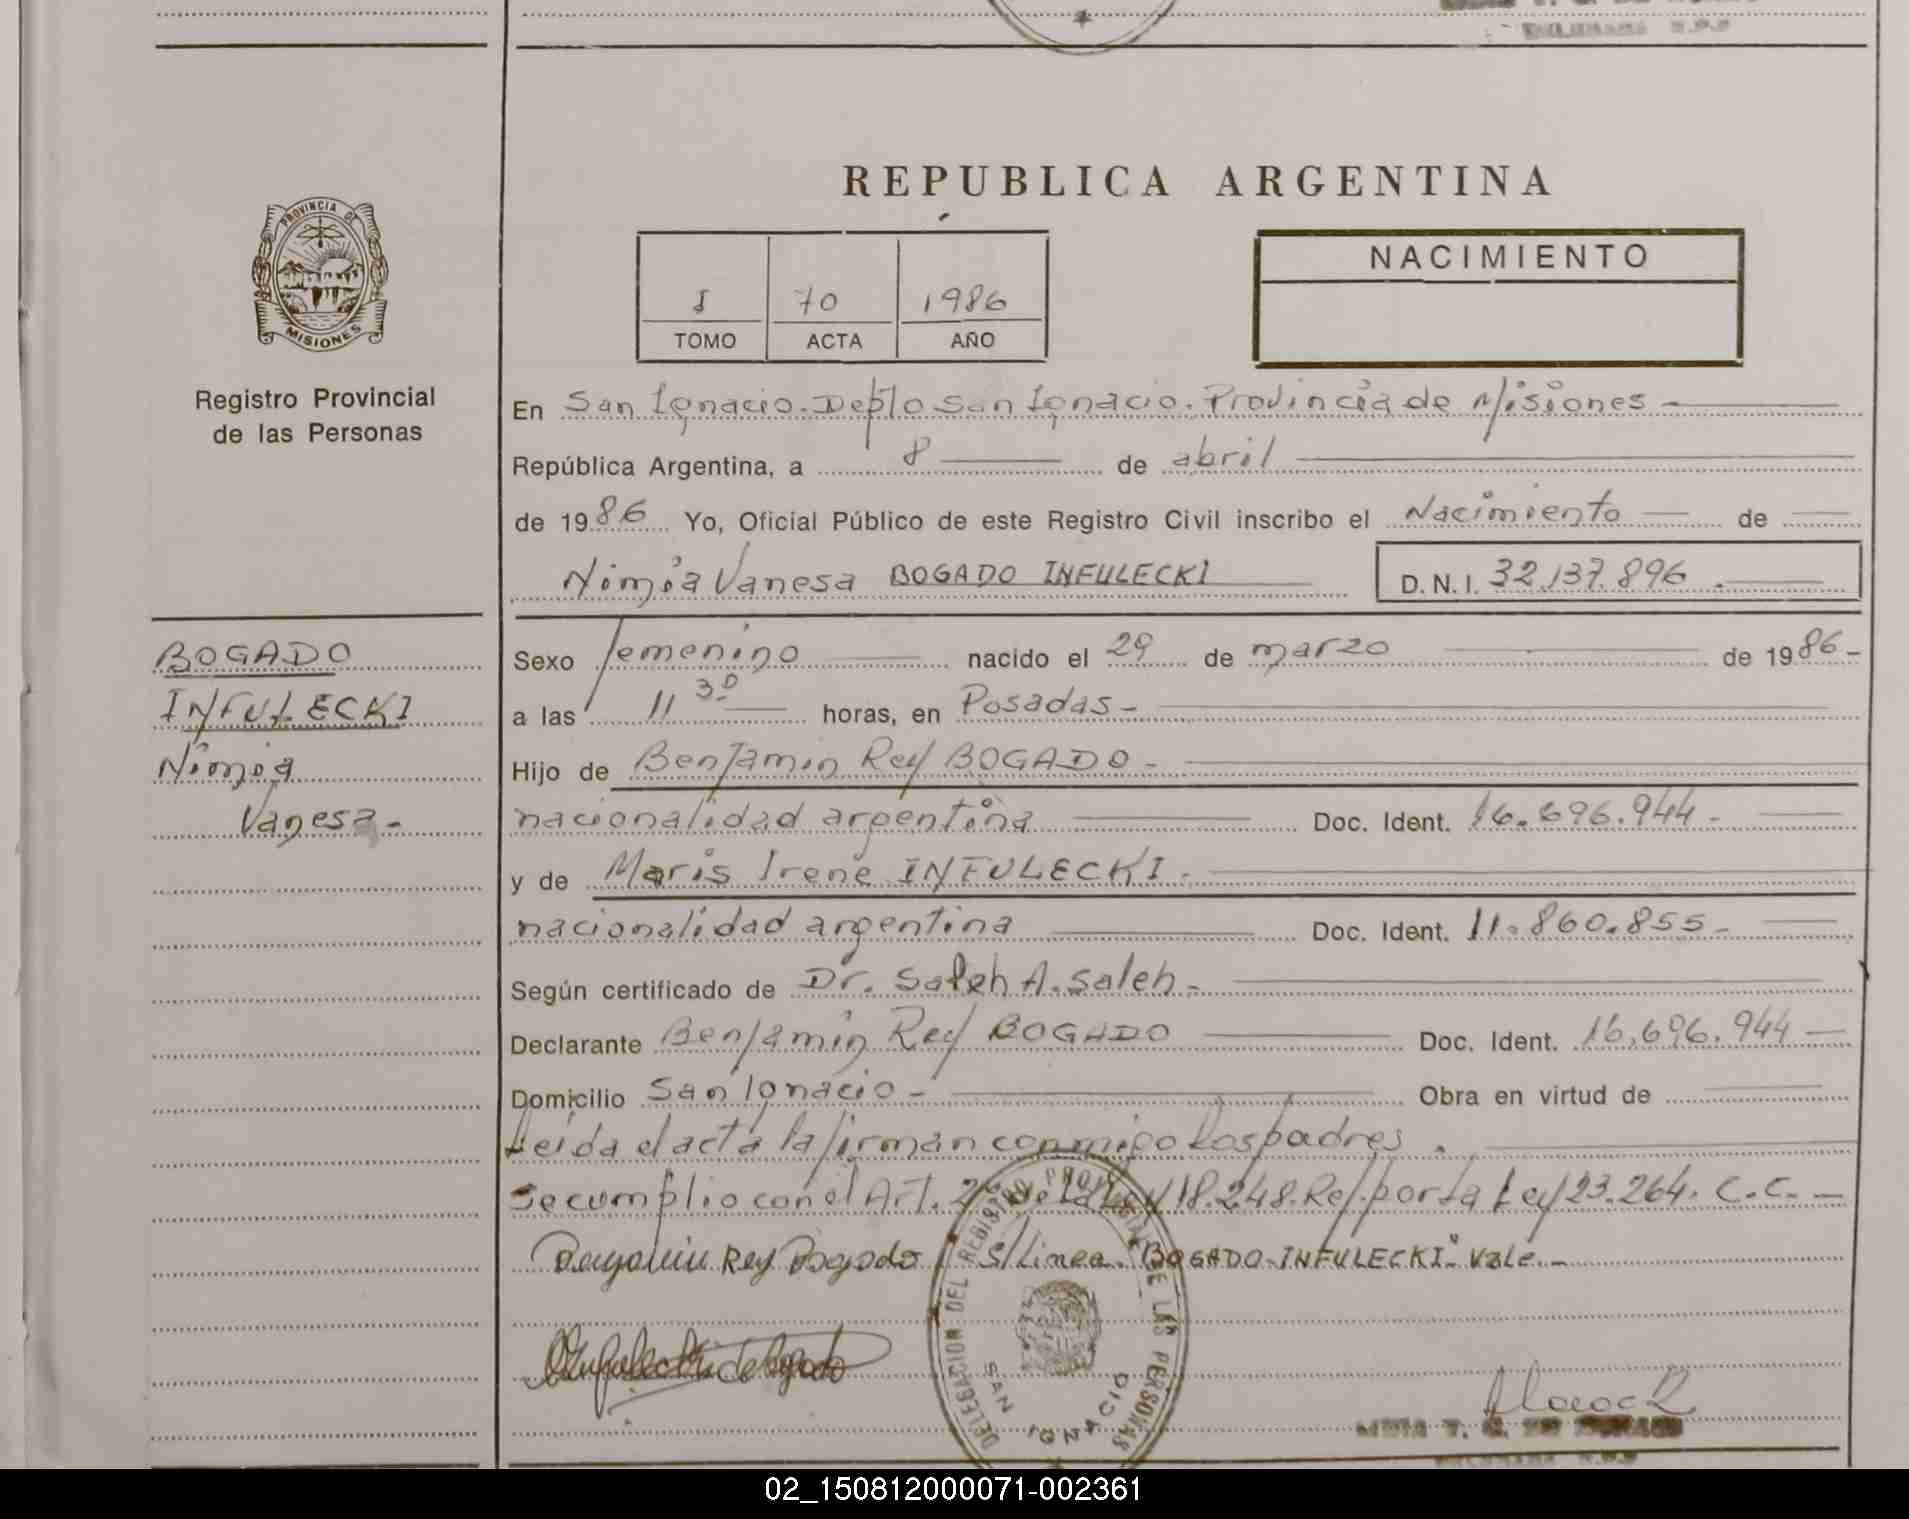 PROVINCIA DE
MISIONES
Registro Provincial
de las Personas
REPUBLICA ARGENTINA
I 70 1986
TOMO ACTA AÑO
NACIMIENTO
En San Ignacio. Depto San Ignacio. Provincia de Misiones -
República Argentina, a 8 de abril
de 1986 Yo, Oficial Público de este Registro Civil inscribo el Nacimiento de
Nimia Vanesa BOGADO INFULECKI D.N.I. 32.137.896 .-
BOGADO
INFULECKI
Nimia
Vanesa.-
Sexo femenino nacido el 29 de marzo de 1986-
a las 11 30 horas, en Posadas-
Hijo de Benjamin Rey BOGADO-
nacionalidad argentina Doc. Ident. 16.696.944-
y de Maris Irene INFULECKI-
nacionalidad argentina Doc. Ident. 11.860.855-
Según certificado de Dr. Saleh A. Saleh-
Declarante Benjamin Rey BOGADO Doc. Ident. 16.696.944-
Domicilio San Ignacio- Obra en virtud de
Leida el acta la firman conmigo los padres.
Se cumplio con el Art. 2 de la Ley 18.248. Ref. por la Ley 23.264. C.C.-
Benjamin Rey Bogado S/Linea. "BOGADO-INFULECKI" Vale.-
DELEGACION DEL REGISTRO PROVINCIAL DE LAS PERSONAS
SAN IGNACIO
02_150812000071-002361